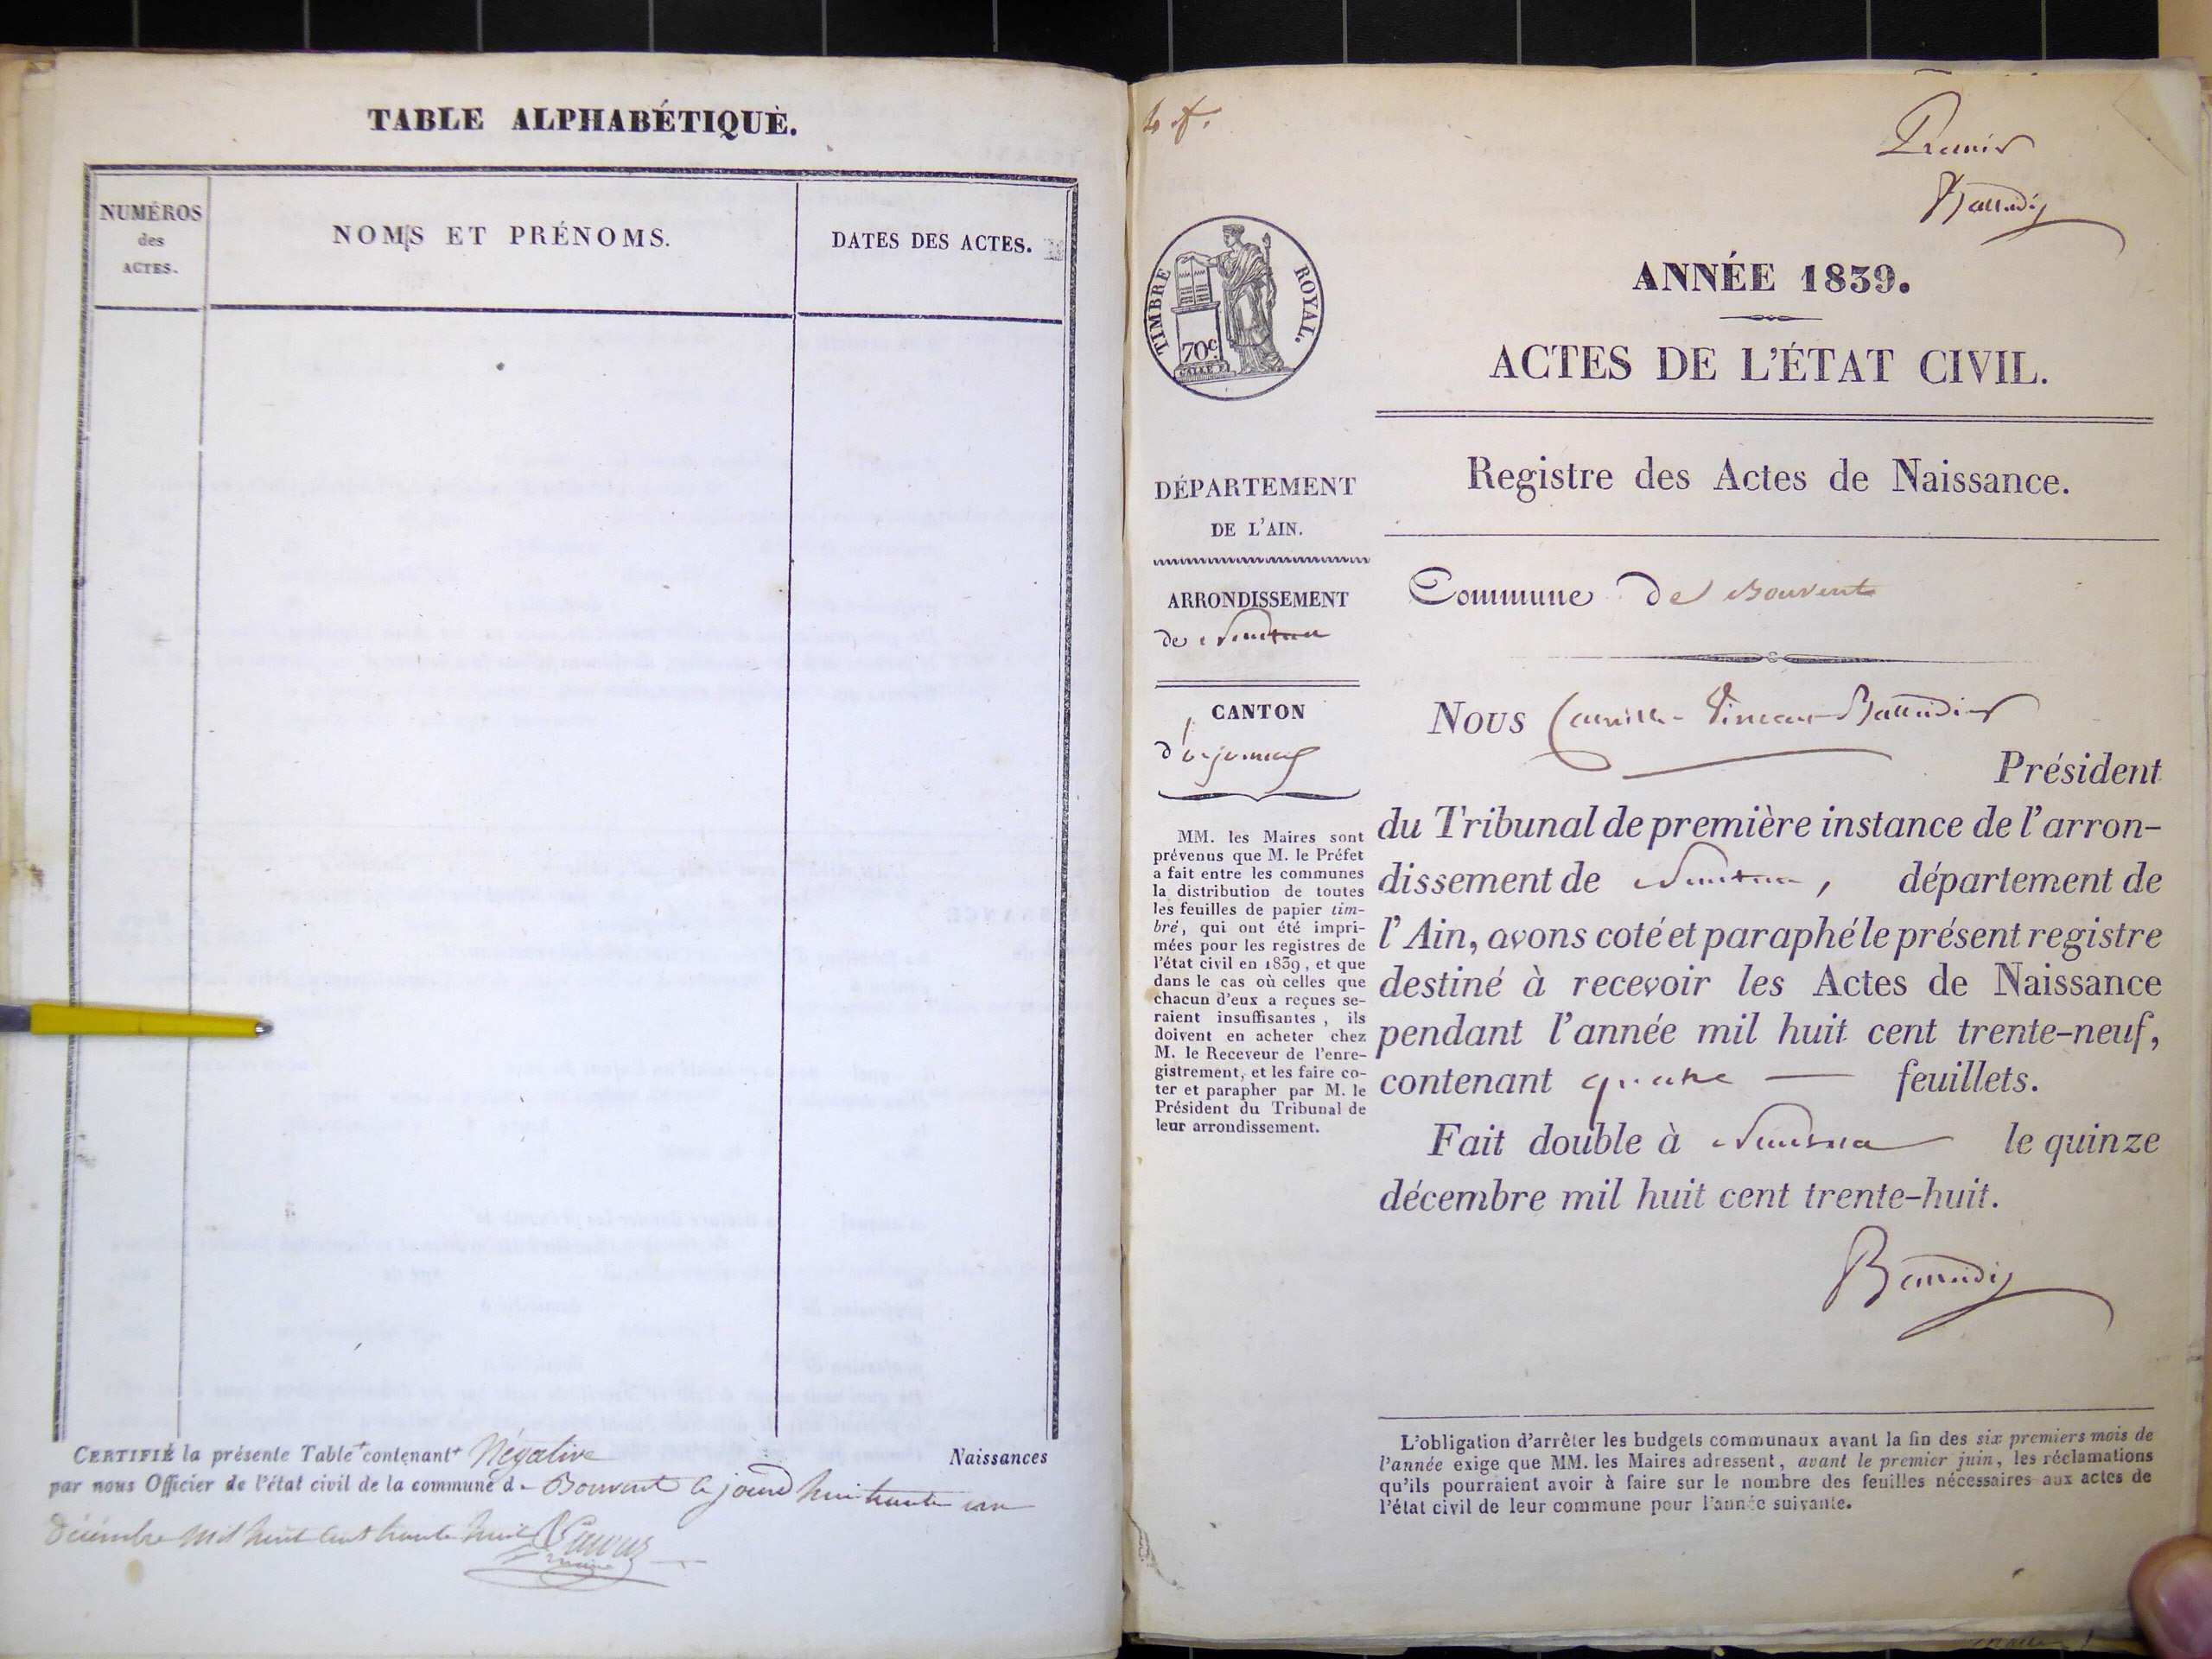 TABLE ALPHABÉTIQUE.
NUMÉROS
des
ACTES.
NOMS ET PRÉNOMS.
DATES DES ACTES.
CERTIFIÉ la présente Table contenant Négative Naissances
par nous Officier de l'état civil de la commune d. Bouvent le jourd'hui trente un
décembre mil huit cent trente huit
4 f.
Premier
TIMBRE ROYAL.
70c.
ANNÉE 1839.
ACTES DE L'ÉTAT CIVIL.
Registre des Actes de Naissance.
DÉPARTEMENT
DE L'AIN.
ARRONDISSEMENT
de Nantua
CANTON
d'oyonnax
MM. les Maires sont
prévenus que M. le Préfet
a fait entre les communes
la distribution de toutes
les feuilles de papier tim-
bré, qui ont été impri-
mées pour les registres de
l'état civil en 1839, et que
dans le cas où celles que
chacun d'eux a reçues se-
raient insuffisantes, ils
doivent en acheter chez
M. le Receveur de l'enre-
gistrement, et les faire co-
ter et parapher par M. le
Président du Tribunal de
leur arrondissement.
Commune de Bouvent
Nous Camille
Président
du Tribunal de première instance de l'arron-
dissement de Nantua, département de
l'Ain, avons coté et paraphé le présent registre
destiné à recevoir les Actes de Naissance
pendant l'année mil huit cent trente-neuf,
contenant quatre — feuillets.
Fait double à Nantua le quinze
décembre mil huit cent trente-huit.
L'obligation d'arrêter les budgets communaux avant la fin des six premiers mois de
l'année exige que MM. les Maires adressent, avant le premier juin, les réclamations
qu'ils pourraient avoir à faire sur le nombre des feuilles nécessaires aux actes de
l'état civil de leur commune pour l'année suivante.